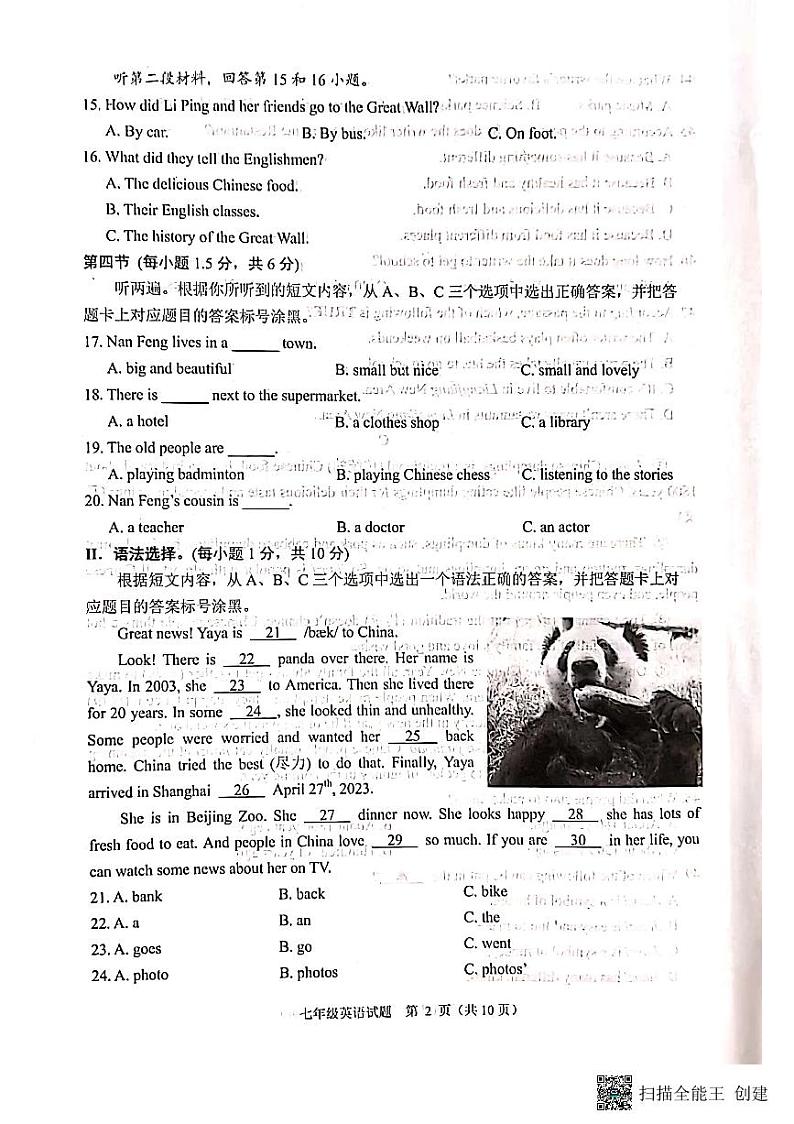 听第二段材料，回答第 15 和 16 小题。
15. How did Li Ping and her friends go to the Great Wall?
A. By car. B. By bus. C. On foot.
16. What did they tell the Englishmen?
A. The delicious Chinese food.
B. Their English classes.
C. The history of the Great Wall.
第四节 (每小题 1.5 分，共 6 分)
听两遍。根据你所听到的短文内容，从 A、B、C 三个选项中选出正确答案，并把答
题卡上对应题目的答案标号涂黑。
17. Nan Feng lives in a ______ town.
A. big and beautiful B. small but nice C. small and lovely
18. There is ______ next to the supermarket.
A. a hotel B. a clothes shop C. a library
19. The old people are ______.
A. playing badminton B. playing Chinese chess C. listening to the stories
20. Nan Feng's cousin is ______.
A. a teacher B. a doctor C. an actor
II. 语法选择。(每小题 1 分，共 10 分)
根据短文内容，从 A、B、C 三个选项中选出一个语法正确的答案，并把答题卡上对
应题目的答案标号涂黑。
Great news! Yaya is 21 /bæk/ to China.
Look! There is 22 panda over there. Her name is
Yaya. In 2003, she 23 to America. Then she lived there
for 20 years. In some 24 , she looked thin and unhealthy.
Some people were worried and wanted her 25 back
home. China tried the best (尽力) to do that. Finally, Yaya
arrived in Shanghai 26 April 27th, 2023.
She is in Beijing Zoo. She 27 dinner now. She looks happy 28 she has lots of
fresh food to eat. And people in China love 29 so much. If you are 30 in her life, you
can watch some news about her on TV.
21. A. bank B. back C. bike
22. A. a B. an C. the
23. A. goes B. go C. went
24. A. photo B. photos C. photos'
七年级英语试题 第 2 页（共 10 页）
扫描全能王 创建